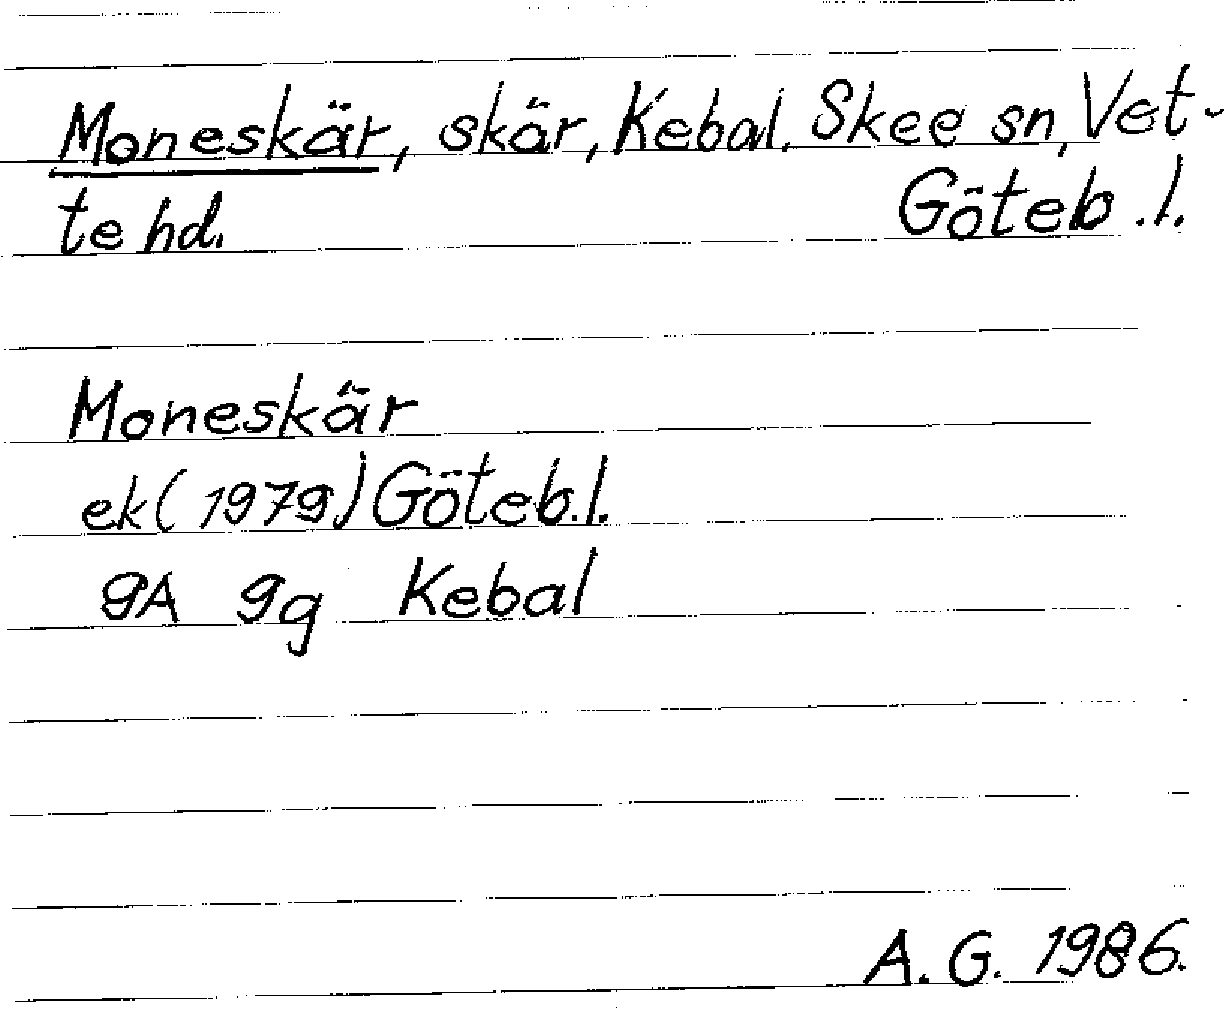 Moneskär, skär, Kebal, Skee sn, Vet-
te hd. Göteb.l.
Moneskär
ek(1979)Göteb.l.
9A 9g Kebal
A.G. 1986.